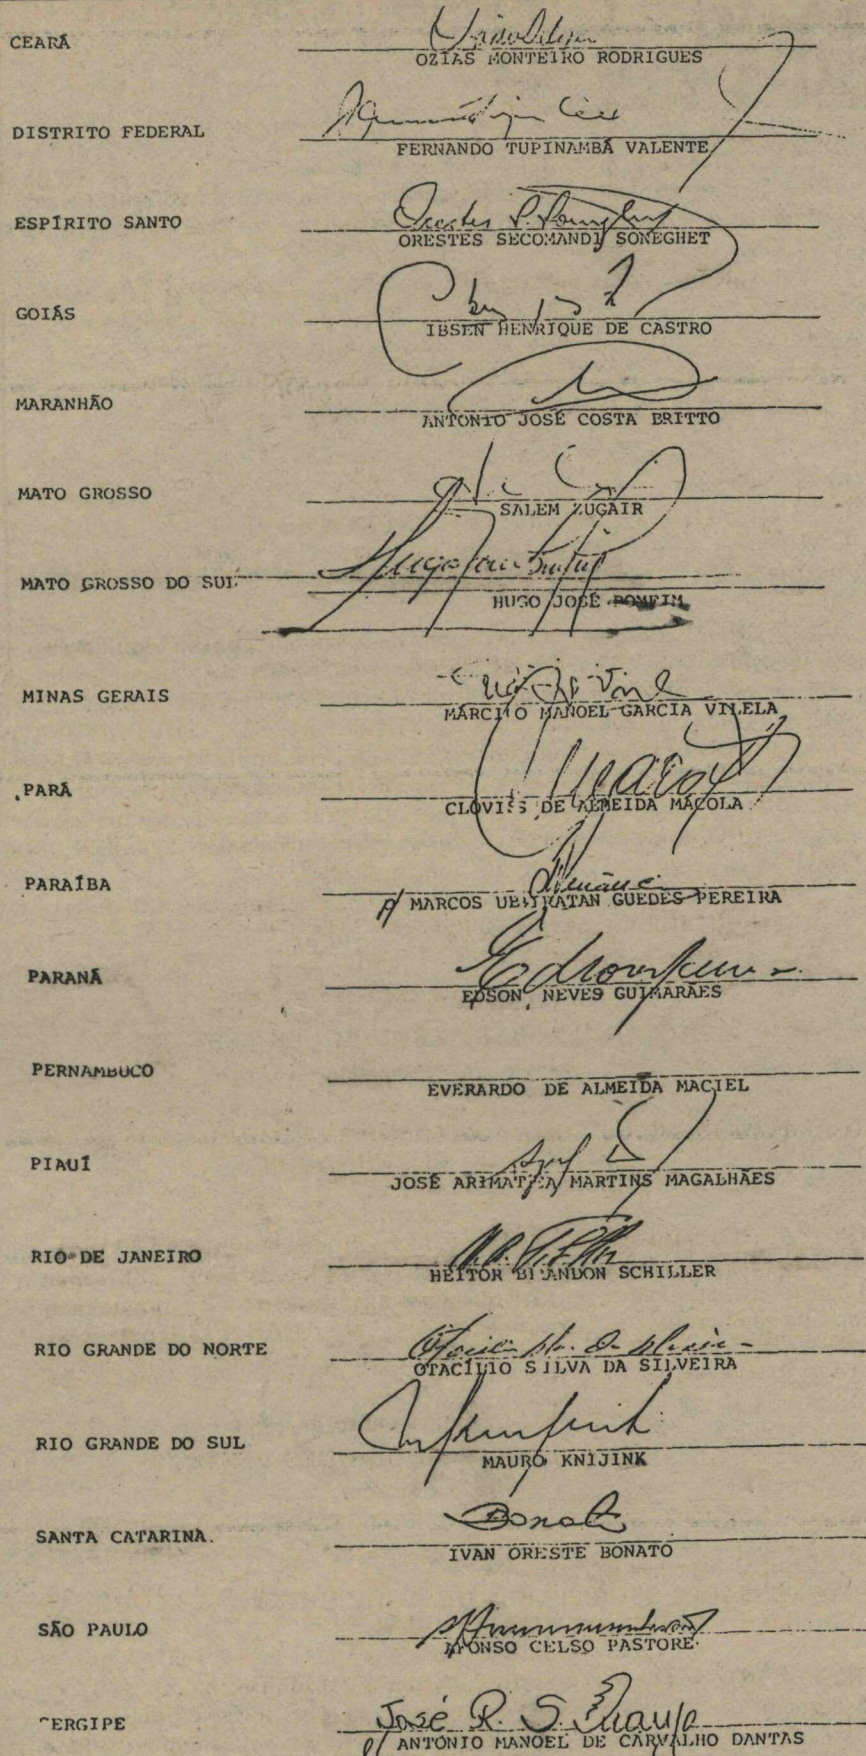 CEARÁ
OZIAS MONTEIRO RODRIGUES
DISTRITO FEDERAL
FERNANDO TUPINAMBÁ VALENTE
ESPÍRITO SANTO
ORESTES SECOMANDI SONEGHET
GOIÁS
IBSEN HENRIQUE DE CASTRO
MARANHÃO
ANTONIO JOSÉ COSTA BRITTO
MATO GROSSO
SALEM ZUGAIR
MATO GROSSO DO SUL
HUGO JOSÉ BOMFIM
MINAS GERAIS
MÁRCIO MANOEL GARCIA VILELA
PARÁ
CLOVIS DE ALMEIDA MÁCOLA
PARAÍBA
P/ MARCOS UBIRATAN GUEDES PEREIRA
PARANÁ
EDSON NEVES GUIMARÃES
PERNAMBUCO
EVERARDO DE ALMEIDA MACIEL
PIAUÍ
JOSÉ ARIMATÉA MARTINS MAGALHÃES
RIO DE JANEIRO
HEITOR BRANDON SCHILLER
RIO GRANDE DO NORTE
OTACÍLIO SILVA DA SILVEIRA
RIO GRANDE DO SUL
MAURO KNIJINK
SANTA CATARINA
Bonato
IVAN ORESTE BONATO
SÃO PAULO
AFONSO CELSO PASTORE
SERGIPE
José R. S. Araujo
P/ ANTONIO MANOEL DE CARVALHO DANTAS